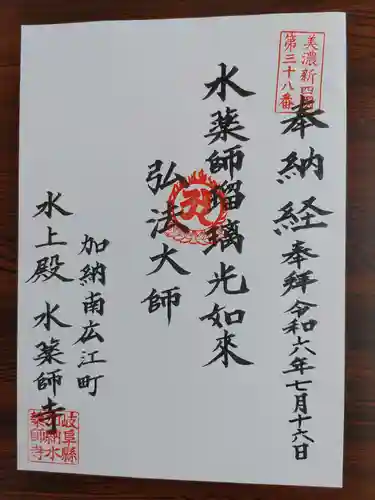 美濃新四国
第三十八番
奉納経 奉拝 令和六年七月十六日
水薬師瑠璃光如来
弘法大師
加納南広江町
水上殿 水薬師寺
岐阜縣
加納水
薬師寺